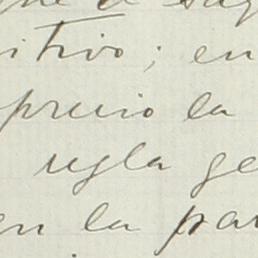 itivo; en
precio la
regla ge
en la par